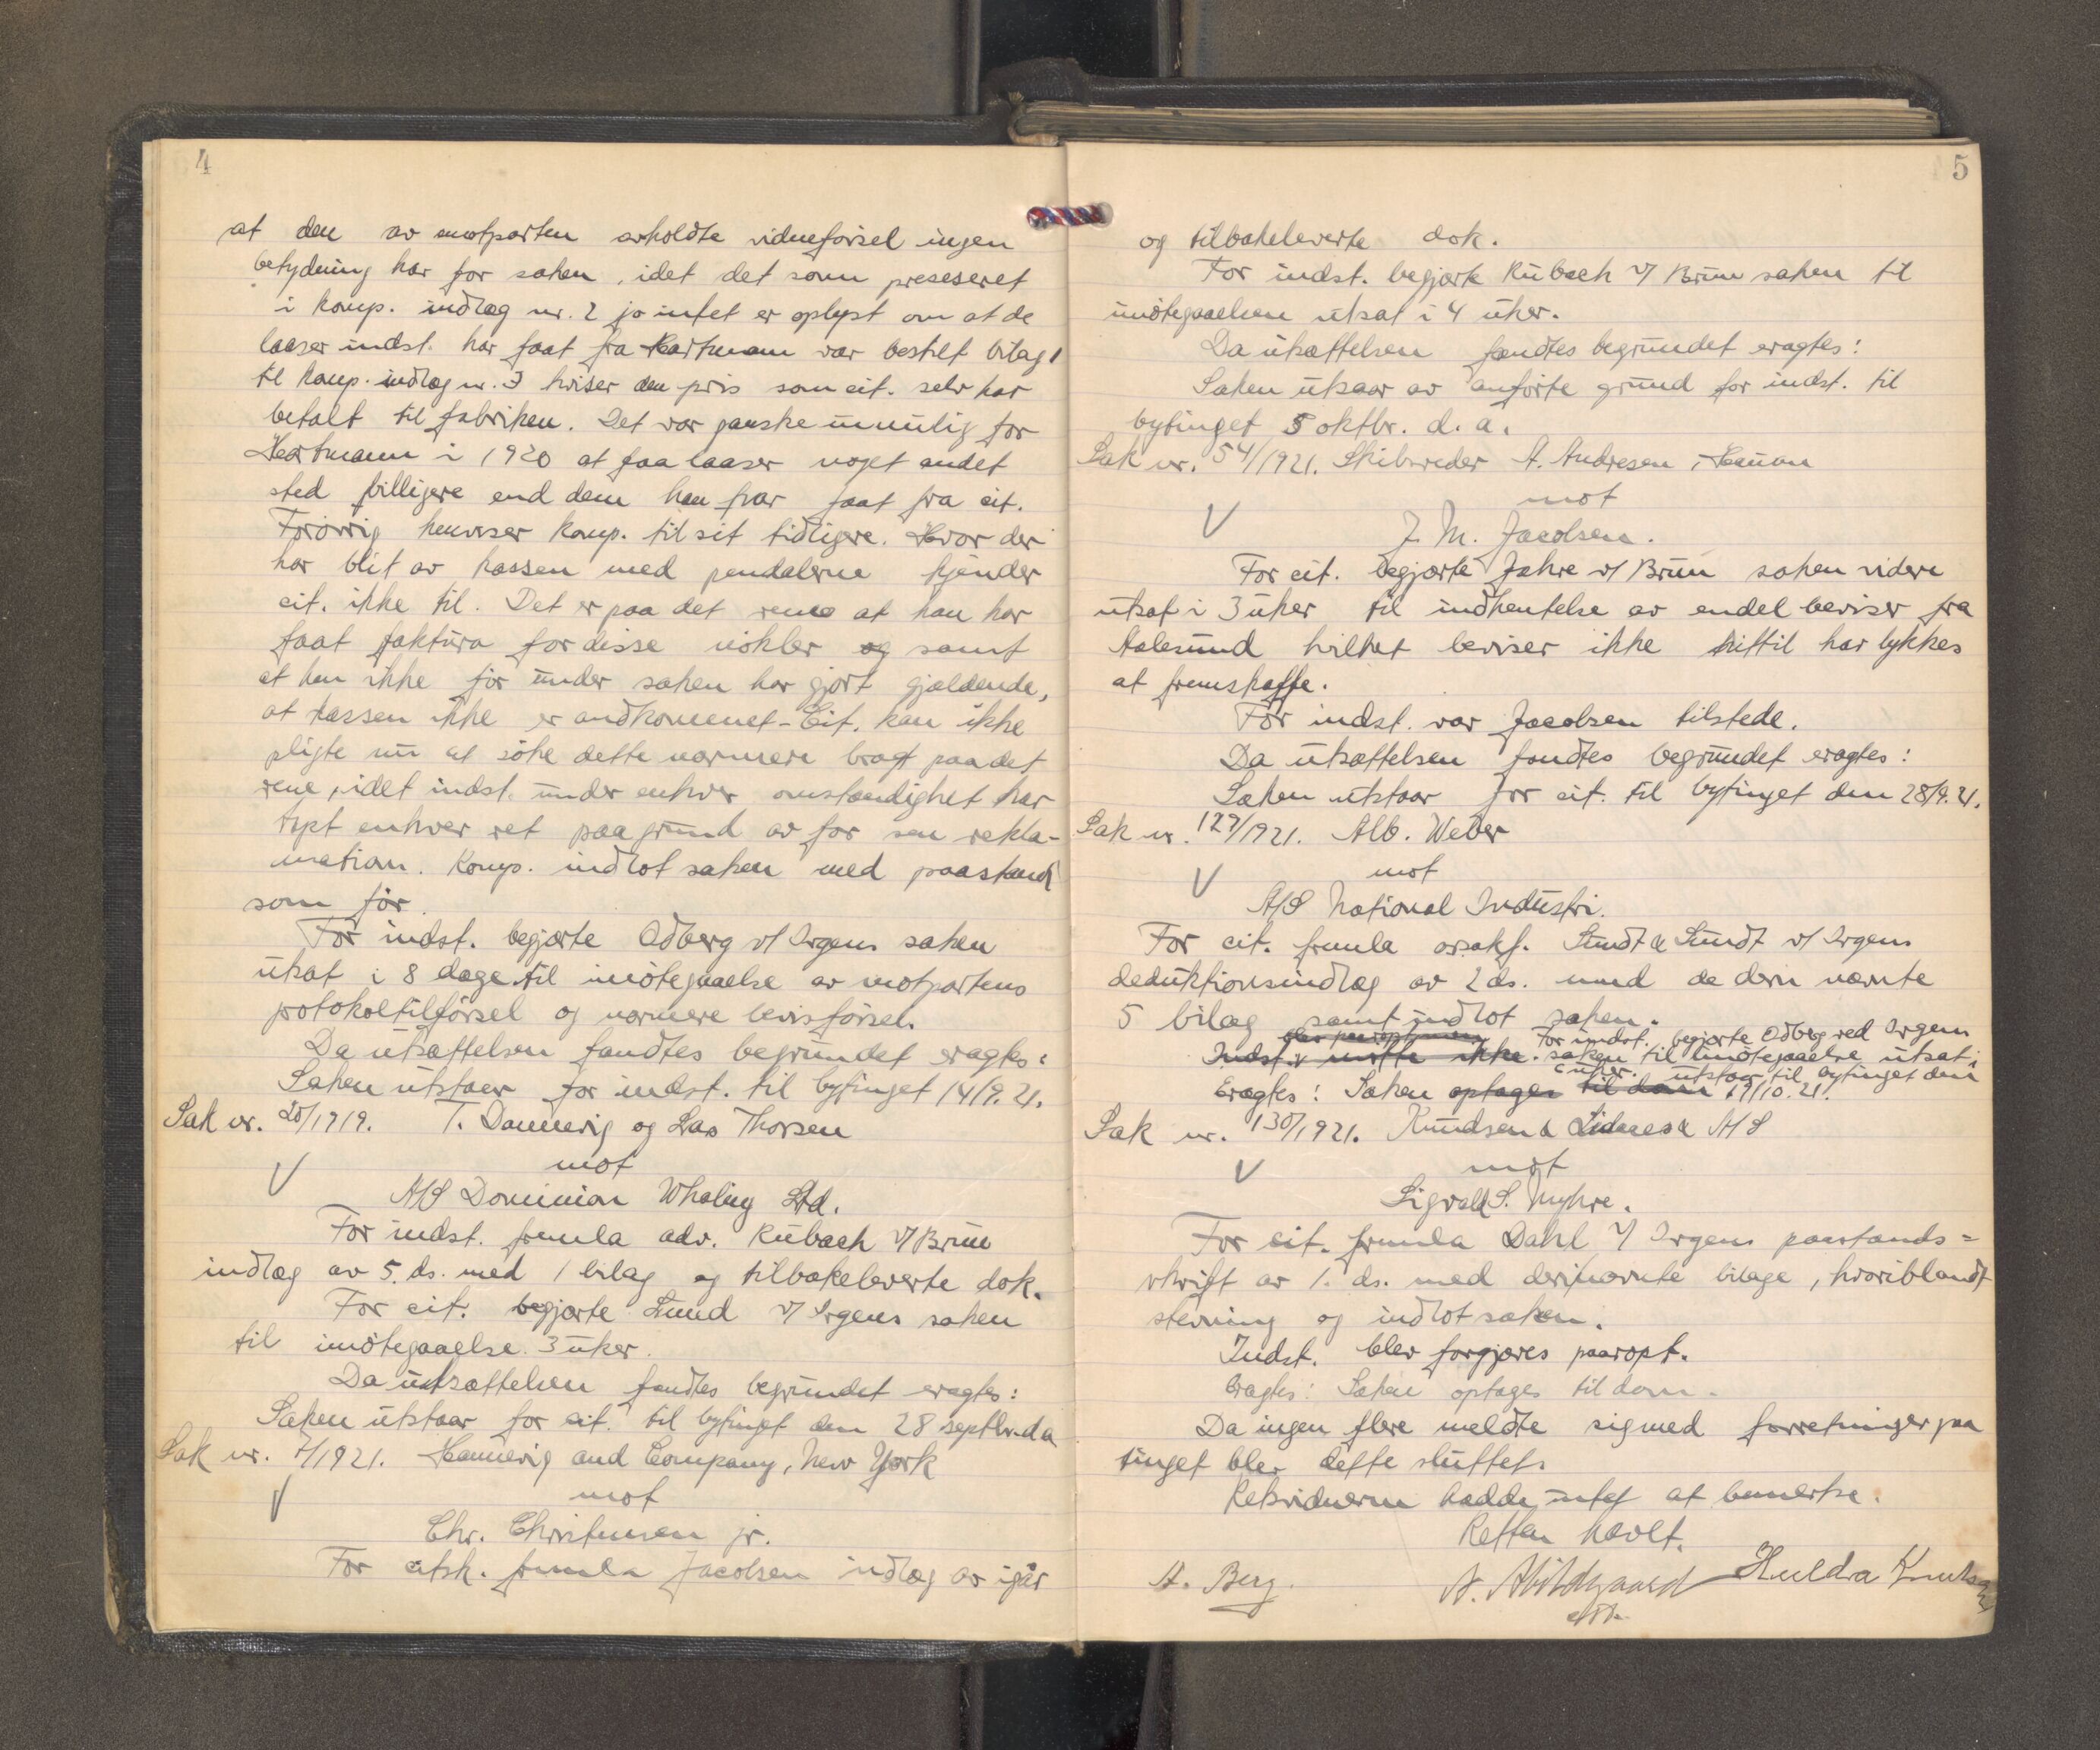 4
at den av motparten avholdte vidneførsel ingen
betydning har for saken, idet det som preseseret
i komp. indlæg nr. 2 jo intet er oplyst om at de
laaser indst. har faat fra Hartmann var bestilt bilag 1
til komp. indlæg nr. 3 hviser den pris som cit. selv har
betalt til fabriken. Det var ganske umulig for
Hartmann i 1920 at faa laaser noget andet
sted billigere end dem han har faat fra cit.
Forøvrig henviser komp. til sit tidligere. Hvor der
har blit av kassen med pendalerne kjender
cit. ikke til. Det er paa det rene at han har
faat faktura for disse nøkler og samt
at han ikke før under saken har gjort gjældende,
at kassen ikke er andkommet - Cit. kan ikke
pligte nu at søke dette nærmere bragt paa det
rene, idet indst. under enhver omstændighet har
tapt enhver ret paa grund av for sen rekla-
mation. Komp. indlot saken med paastand
som før.
For indst. begjærte Ødberg v/ Irgens saken
utsat i 8 dage til imøtegaaelse av motpartens
protokoltilførsel og nærmere bevisførsel.
Da utsættelsen fandtes begrundet eragtes:
Saken utstaar for indst. til bytinget 14/9.21.
Sak nr. 20/1919. T. Dannevig og Lars Thorsen
mot
A/S Dominion Whaling Ltd.
For indst. fremla adv. Rubach v/ Brun
indlæg av 5. ds. med 1 bilag og tilbakeleverte dok.
For cit. begjærte Lund v/ Irgens saken
til imøtegaaelse 3 uker.
Da utsættelsen fandtes begrundet eragtes:
Saken utstaar for cit. til bytinget den 28 septbr. d.a
Sak nr. 7/1921. Hannevig and Company, New York
mot
Chr. Christensen jr.
For citsk. fremla Jacobsen indlæg av igår
5
og tilbakeleverte dok.
For indst. begjærte Rubach v/ Brun saken til
imøtegaaelsen utsat i 4 uker.
Da utsættelsen fandtes begrundet eragtes:
Saken utstaar av anførte grund for indst. til
bytinget 5 oktbr. d. a.
Sak nr. 54/1921. Skibsreder A. Andresen,
mot
J. M. Jacobsen.
For cit. begjærte Jahre v/ Brun saken videre
utsat i 3 uker til indhentelse av endel beviser fra
Aalesund hvilket beviser ikke hittil har lykkes
at fremskaffe.
For indst. var Jacobsen tilstede.
Da utsættelsen fandtes begrundet eragtes:
Saken utstaar for cit. til bytinget den 28/9.21.
Sak nr. 129/1921. Alb. Weber
mot
A/S National Industri.
For cit. fremla orsakf. Sundt & Sundt v/ Irgens
deduktionsindlæg av 2 ds. med de deri nævnte
5 bilag samt indlot saken.
blev paaropt men For indst. begjærte Ødberg ved Irgens
Indst. v møtte ikke. saken til imøtegaaelse utsat i
6 uker. utstaar til bytinget den
Eragtes: Saken optages til dom 19/10.21.
Sak nr. 130/1921. Knudsen & A/S
mot
Sigvald S. Myhre.
For cit. fremla Dahl v/ Irgens paastands=
skrift av 1. ds. med derinævnte bilage, hvoriblandt
stevning og indlot saken.
Indst. blev forgjæves paaropt.
Eragtes: Saken optages til dom.
Da ingen flere meldte sig med forretninger paa
tinget blev dette sluttet.
Retsvidnerne hadde intet at bemerke.
Retten hævet.
A. Berg. A. Abildgaard Huldra Knutsen